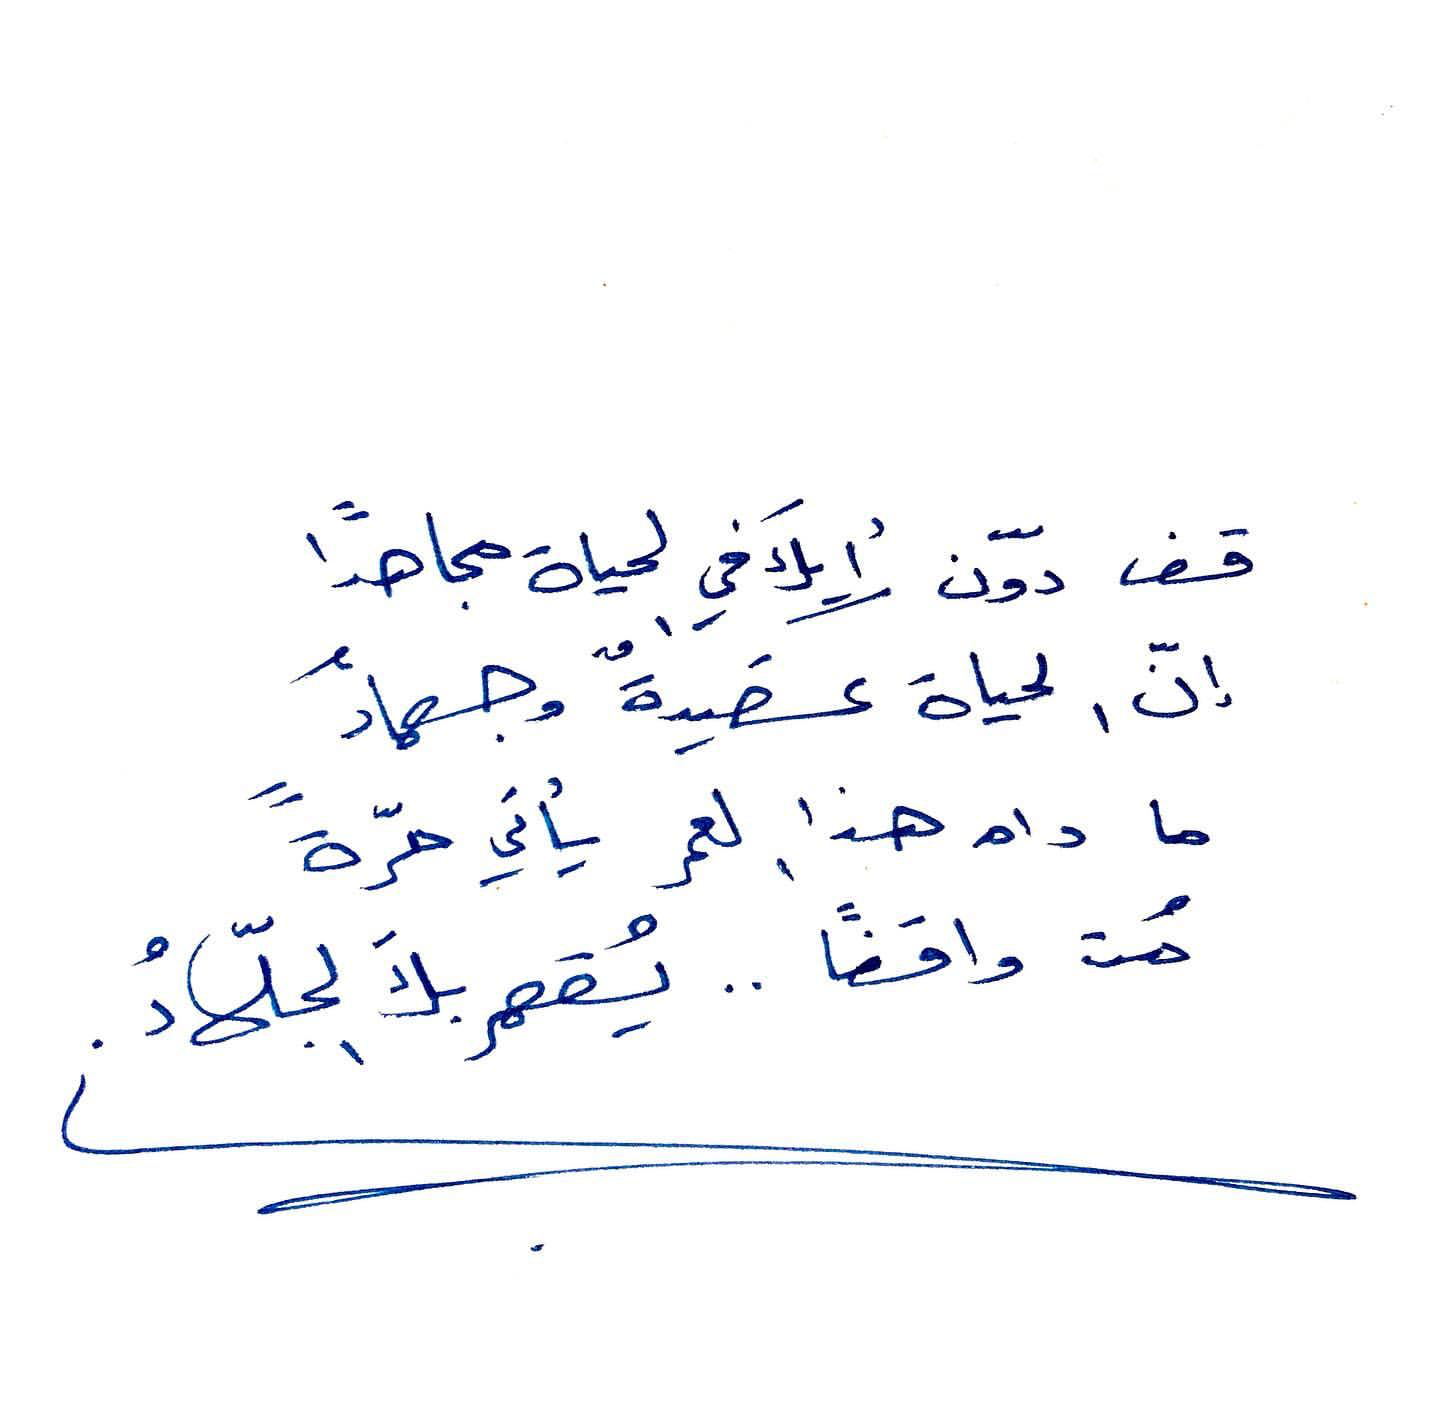 قف دوّن رأيِكَ في الحياة مجاهدًا
إنّ الحياة عقيدةٌ وجهادُ
ما دام هذا العمر يأتي مرّةً
مُت واقفًا .. يُقهر بكَ الجلّادُ.